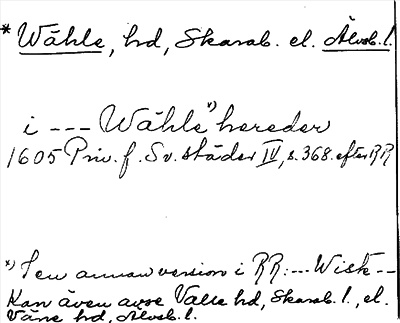 * Wåhle, hd, Skarab. el. Älvsb. l.
i --- Wåhle *) hereder
1605 Priv. f. Sv. städer IV, s. 368. efter RR
*) I en annan version i RR: --- Wisk --
Kan även avse Valle hd, Skarab. l., el.
Väne hd, Älvsb. l.